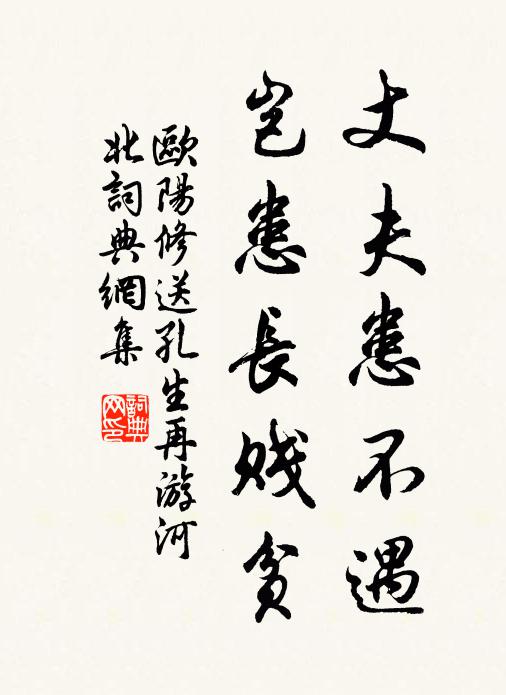 丈夫患不遇
豈患長賤貧
歐陽修送孔生再游河
北詞典網集
詞典
网印